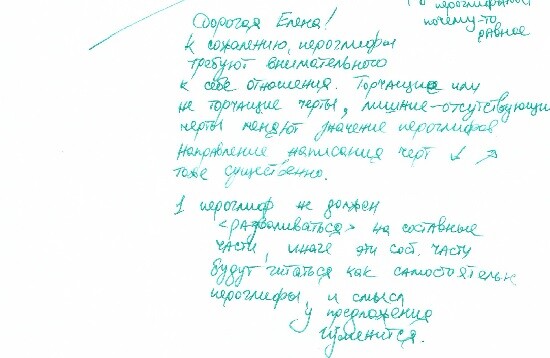 иероглифами
почему-то
разное
Дорогая Елена!
К сожалению, иероглифы
требуют внимательного
к себе отношения. Торчащие или
не торчащие черты, лишние-отсутствующи
черты меняют значение иероглифов
Направление написания черт ↙ ↗
тоже существенно.
1 иероглиф не должен
<разваливаться> на составные
части, иначе эти сост. части
будут читаться как самостоятельн
иероглифы, и смысл
у предложения
изменится.